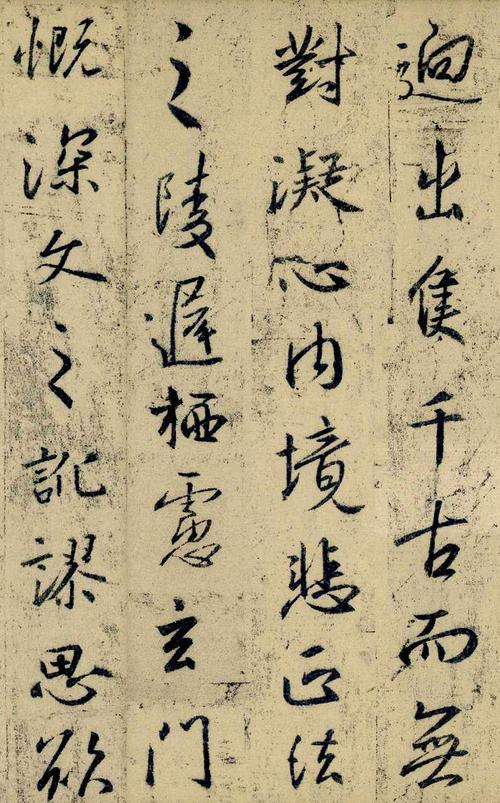 迥出隻千古而無
對凝心内境悲正法
之陵遲栖慮玄門
慨深文之訛謬思欲